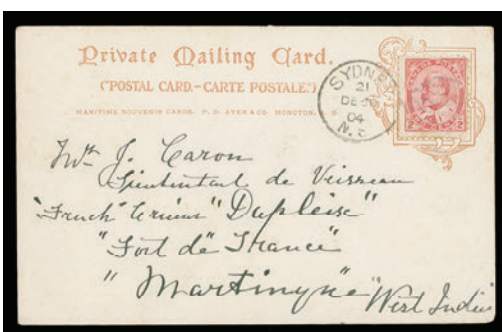 Private Mailing Card.
("POSTAL CARD.-CARTE POSTALE.")
MARITIME SOUVENIR CARDS. P. D. AYER & CO. MONCTON,
SYDNEY
21
DE
04
N. S
CANADA POSTAGE
2 2
J. Caron
de
"French Cruiser" "Dupleise"
"Fort de France"
"Martinique" West Indies